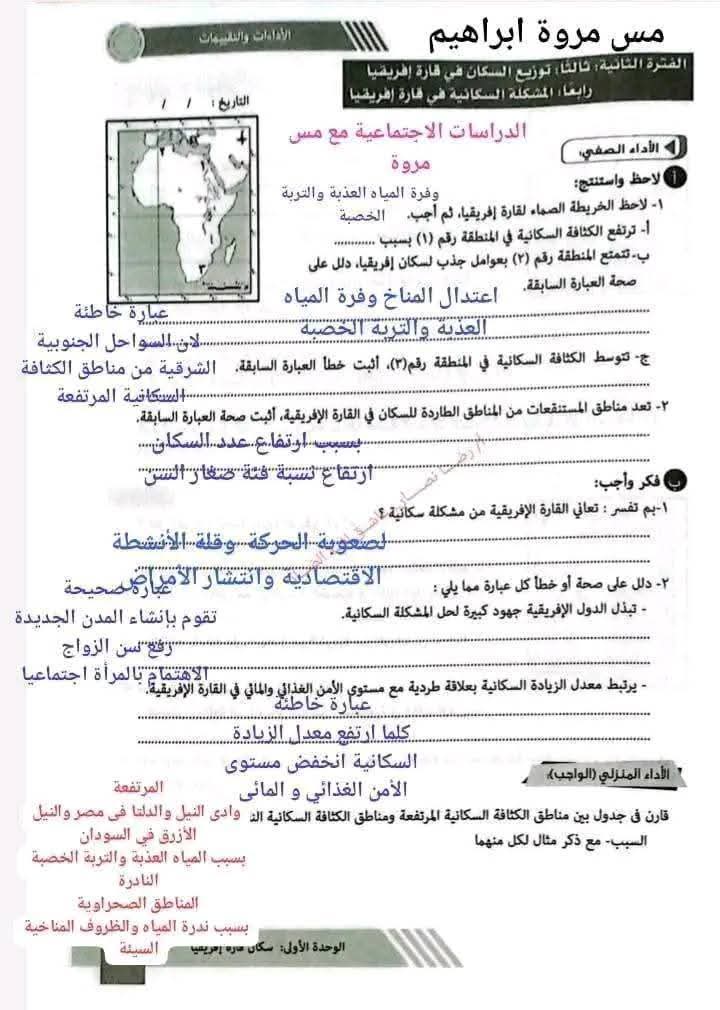 مس مروة ابراهيم
الأداءات والتقييمات
الفترة الثانية: ثالثًا: توزيع السكان في قارة إفريقيا
رابعًا: المشكلة السكانية في قارة إفريقيا
التاريخ : / /
الدراسات الاجتماعية مع مس
مروة
الأداء الصفي:
أ لاحظ واستنتج:
١- لاحظ الخريطة الصماء لقارة إفريقيا، ثم أجب.
وفرة المياه العذبة والتربة
الخصبة
أ- ترتفع الكثافة السكانية في المنطقة رقم (١) بسبب ............
ب- تتمتع المنطقة رقم (٢) بعوامل جذب لسكان إفريقيا، دلل على
صحة العبارة السابقة.
اعتدال المناخ وفرة المياه
العذبة والتربة الخصبة
ج- تتوسط الكثافة السكانية في المنطقة رقم(٣)، أثبت خطأ العبارة السابقة.
عبارة خاطئة
لان السواحل الجنوبية
الشرقية من مناطق الكثافة
السكانية المرتفعة
٢- تعد مناطق المستنقعات من المناطق الطاردة للسكان في القارة الإفريقية، أثبت صحة العبارة السابقة.
بسبب ارتفاع عدد السكان
ارتفاع نسبة فئة صغار السن
ب فكر وأجب:
١-بم تفسر : تعاني القارة الإفريقية من مشكلة سكانية ؟
لصعوبة الحركة وقلة الأنشطة
الاقتصادية وانتشار الأمراض
٢- دلل على صحة أو خطأ كل عبارة مما يلي :
- تبذل الدول الإفريقية جهود كبيرة لحل المشكلة السكانية.
عبارة صحيحة
تقوم بإنشاء المدن الجديدة
رفع سن الزواج
الاهتمام بالمرأة اجتماعيا
- يرتبط معدل الزيادة السكانية بعلاقة طردية مع مستوى الأمن الغذائي والمائي في القارة الإفريقية.
عبارة خاطئة
كلما ارتفع معدل الزيادة
السكانية انخفض مستوى
الأمن الغذائي و المائى
الأداء المنزلي (الواجب):
قارن فى جدول بين مناطق الكثافة السكانية المرتفعة ومناطق الكثافة السكانية
السبب- مع ذكر مثال لكل منهما
المرتفعة
وادى النيل والدلتا فى مصر والنيل
الأزرق في السودان
بسبب المياه العذبة والتربة الخصبة
النادرة
المناطق الصحراوية
بسبب ندرة المياه والظروف المناخية
السيئة
الوحدة الأولى: سكان قارة إفريقيا